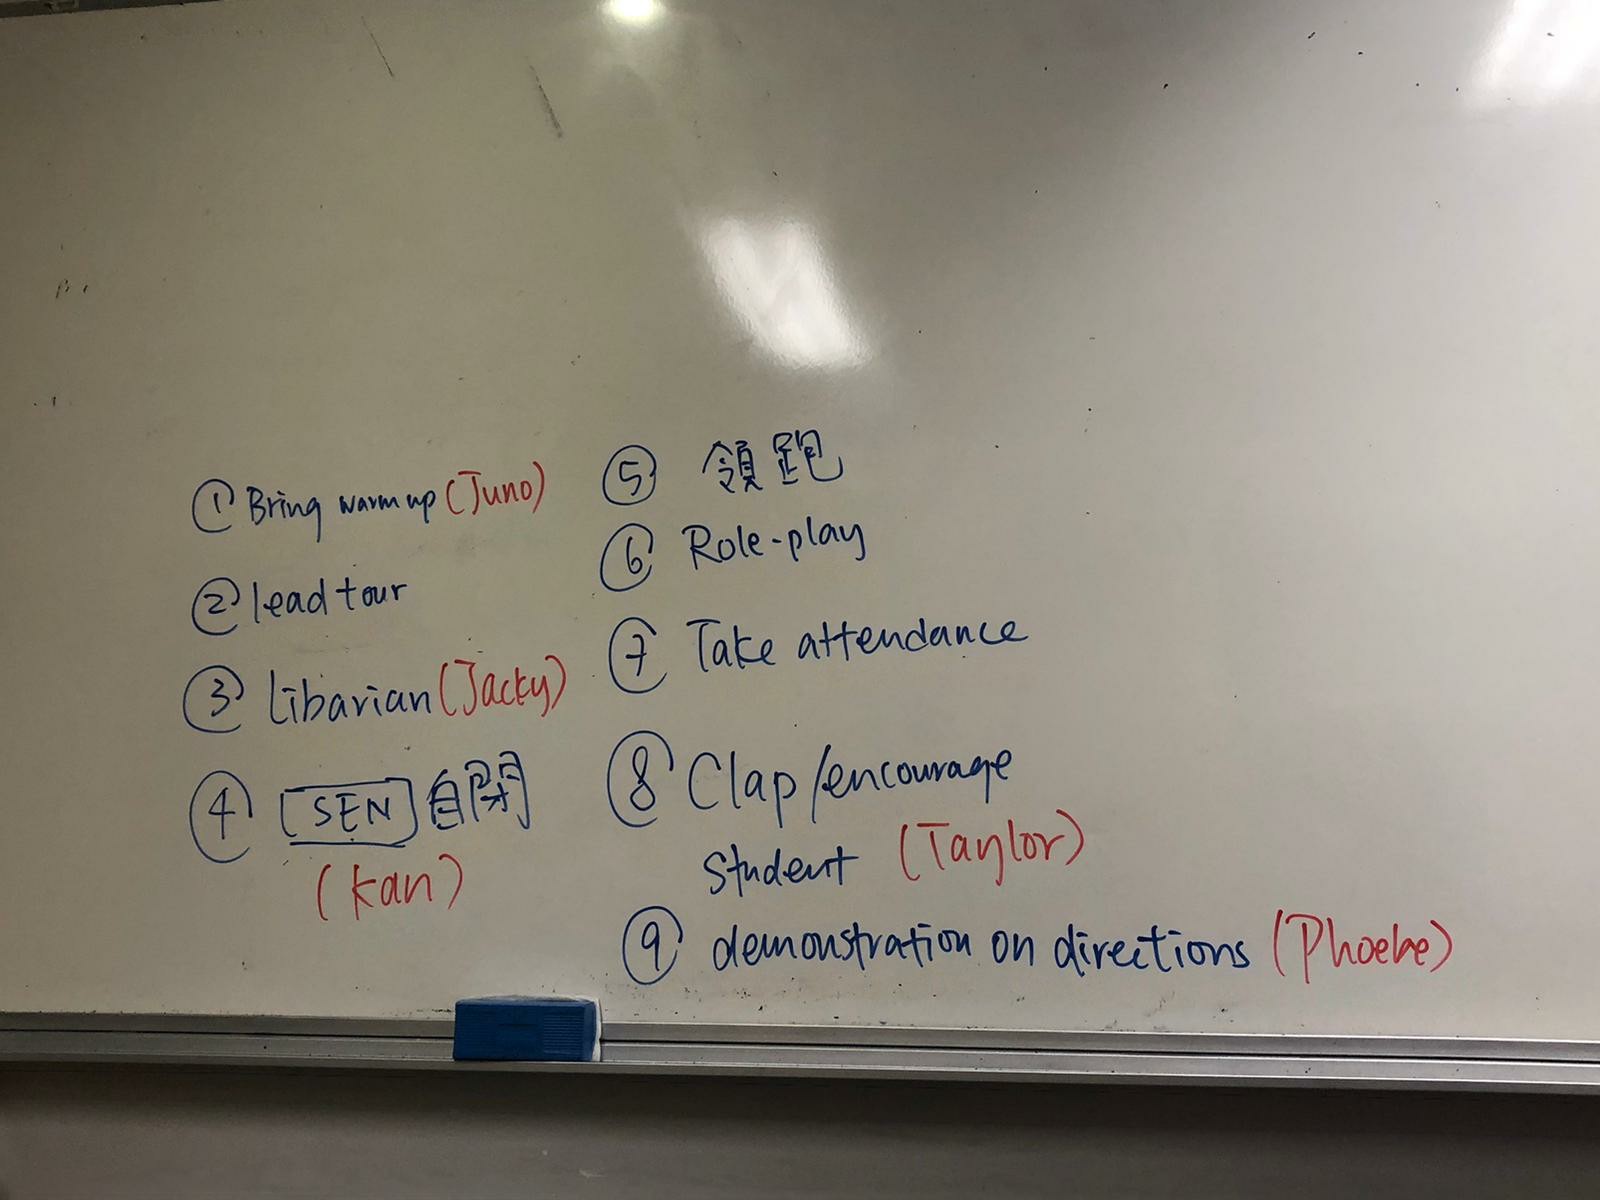 ① Bring warm up (Juno)
② lead tour
③ libarian (Jacky)
④ [SEN] 自閉
(Kan)
⑤ 領跑
⑥ Role-play
⑦ Take attendance
⑧ Clap/encourage
student (Taylor)
⑨ demonstration on directions (Phoebe)